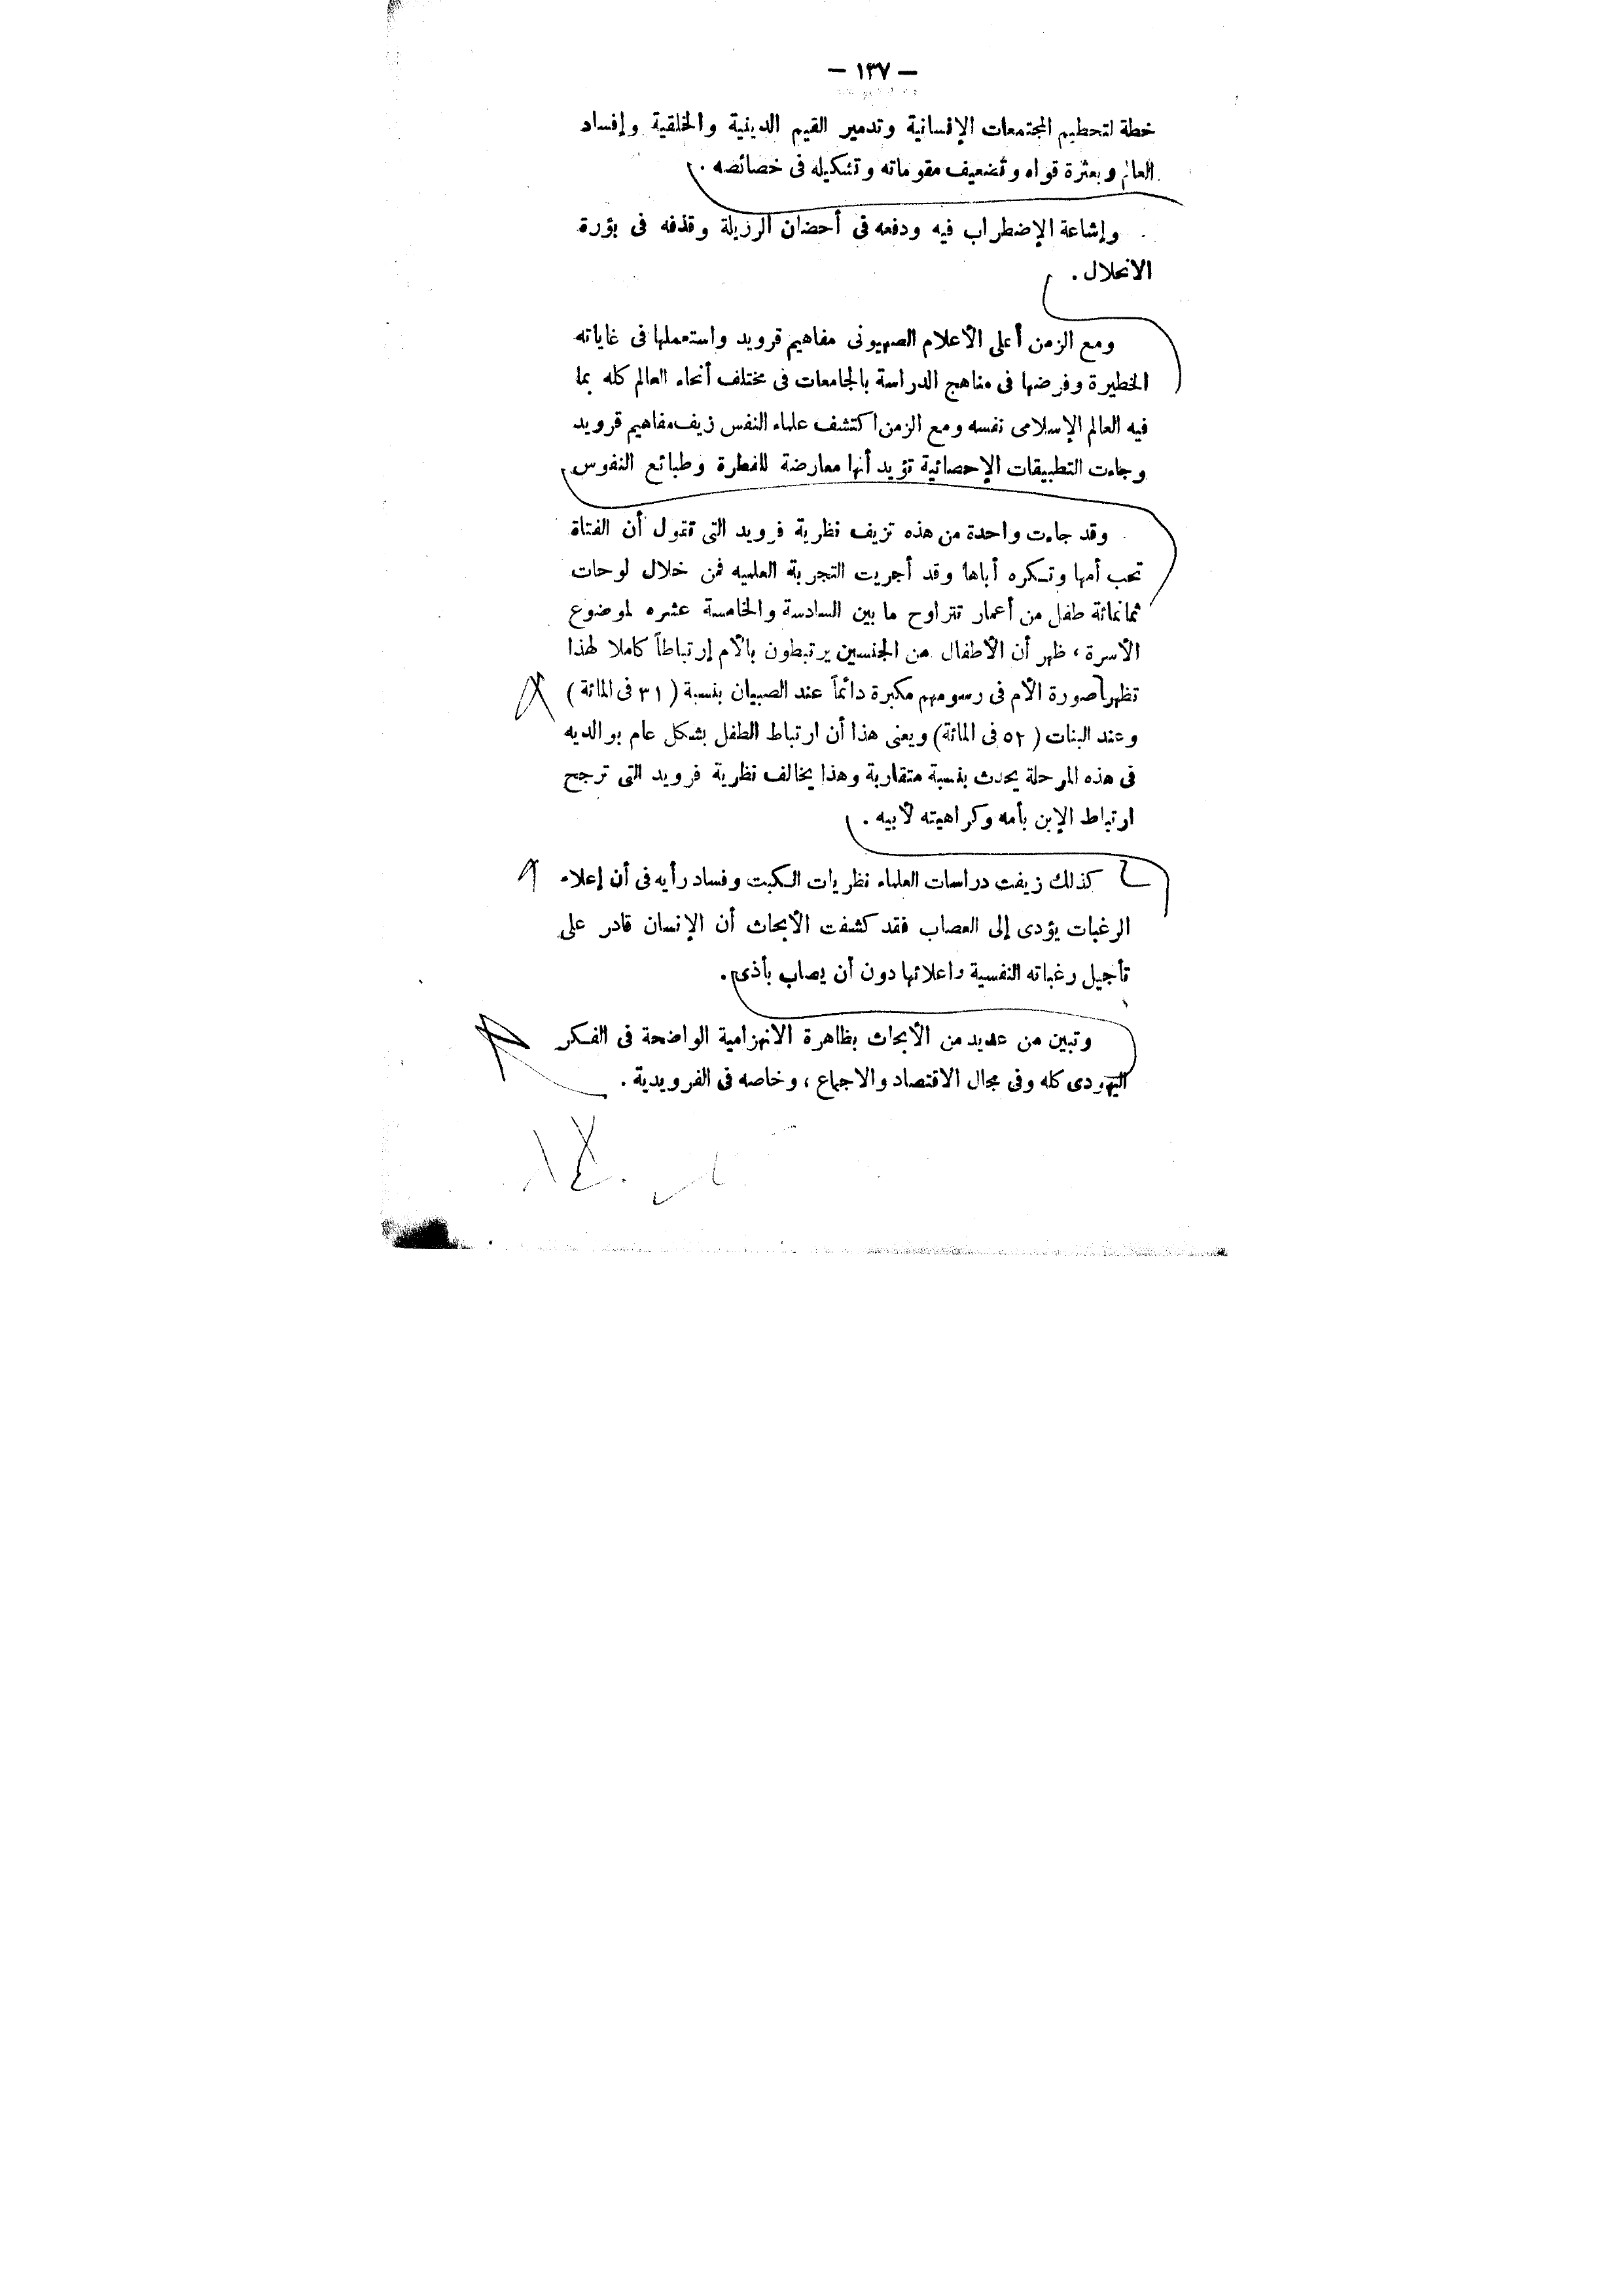 — ١٣٧ —
خطة لتحطيم المجتمعات الإنسانية وتدمير القيم الدينية والخلقية وإفساد
العالم وبعثرة قواه وتضعيف مقوماته وتشكيله فى خصائصه .
وإشاعة الإضطراب فيه ودفعه فى أحضان الرزيلة وقذفه فى بؤرة
الانحلال .
ومع الزمن أعلى الأعلام الصهيونى مفاهيم قرويد واستعملها فى غاياته
الخطيرة وفرضها فى مناهج الدراسة بالجامعات فى مختلف أنحاء العالم كله بما
فيه العالم الإسلامى نفسه ومع الزمن اكتشف علماء النفس زيف مفاهيم قرويد
وجاءت التطبيقات الإحصائية تؤيد أنها معارضة للفطرة وطبائع النفوس
وقد جاءت واحدة من هذه تزيف نظرية فرويد التى تقول أن الفتاة
تحب أمها وتكره أباها وقد أجريت التجربة العلميه فمن خلال لوحات
ثمانمائة طفل من أعمار تتراوح ما بين السادسة والخامسة عشره لموضوع
الأسرة ، ظهر أن الأطفال من الجنسين يرتبطون بالأم إرتباطاً كاملا لهذا
تظهر صورة الأم فى رسومهم مكبرة دائماً عند الصبيان بنسبة ( ٣١ فى المائة )
وعند البنات ( ٥٢ فى المائة ) ويعنى هذا أن ارتباط الطفل بشكل عام بوالديه
فى هذه المرحلة يحدث بنسبة متقاربة وهذا يخالف نظرية فرويد التى ترجح
ارتباط الإبن بأمه وكراهيته لأبيه .
كذلك زيفت دراسات العلماء نظريات الكبت وفساد رأيه فى أن إعلاء
الرغبات يؤدى إلى العصاب فقد كشفت الأبحاث أن الإنسان قادر على
تأجيل رغباته النفسية واعلائها دون أن يصاب بأذى .
وتبين من عديد من الأبحاث بظاهرة الانهزامية الواضحة فى الفكر
اليهودى كله وفى مجال الاقتصاد والاجماع ، وخاصه فى الفرويدية .